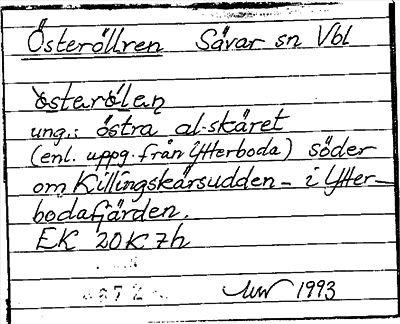 Österöllren Sävar sn Vbl
österölaņ
ung.: östra al-skäret
(enl. uppg. från Ytterboda) söder
om Killingskärsudden - i Ytter-
bodafjärden.
EK 20K 7h
1993